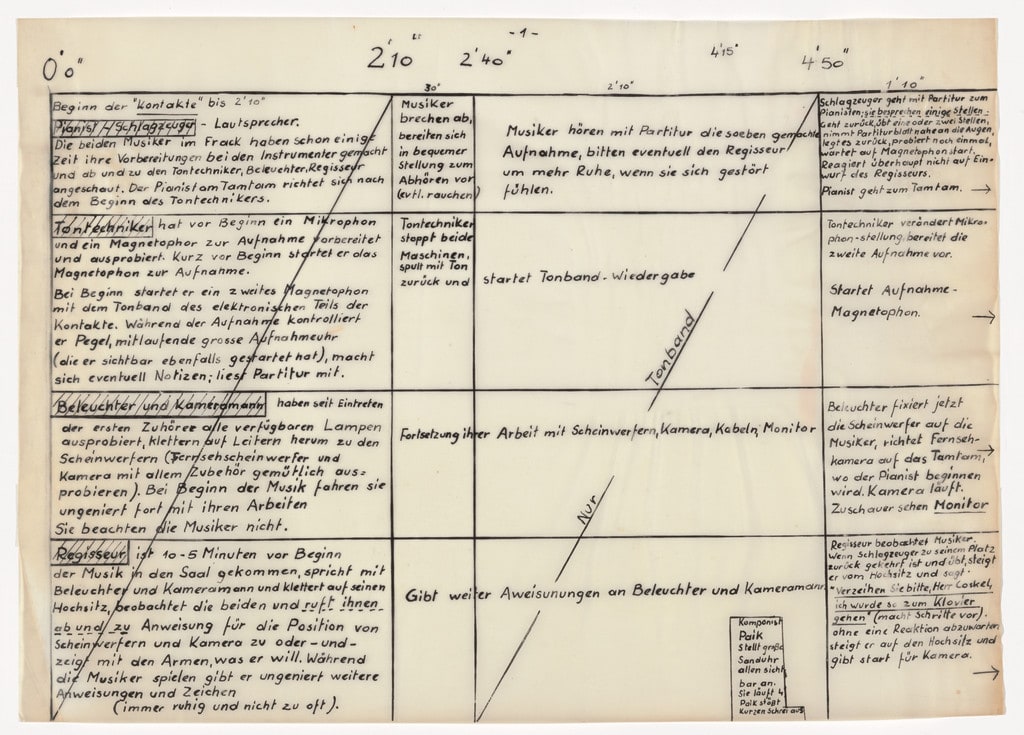 -1-
0'0"
2'10"
2'40"
4'15"
4'50"
30"
2'10"
1'10"
Beginn der "Kontakte" bis 2'10"
Pianist / Schlagzeuger - Lautsprecher.
Die beiden Musiker im Frack haben schon einige
Zeit ihre Vorbereitungen bei den Instrumenten gemacht
und ab und zu den Tontechniker, Beleuchter, Regisseur
angeschaut. Der Pianist am Tamtam richtet sich nach
dem Beginn des Tontechnikers.
Musiker
brechen ab,
bereiten sich
in bequemer
Stellung zum
Abhören vor
(evtl. rauchen)
Musiker hören mit Partitur die soeben gemachte
Aufnahme, bitten eventuell den Regisseur
um mehr Ruhe, wenn sie sich gestört
fühlen.
Schlagzeuger geht mit Partitur zum
Pianisten; sie besprechen einige Stellen.
Geht zurück, übt eine oder zwei Stellen,
nimmt Partiturblatt nahe an die Augen,
legt es zurück, probiert noch einmal,
wartet auf Magnetophonstart.
Reagiert überhaupt nicht auf Ein-
wurf des Regisseurs.
Pianist geht zum Tamtam. →
Tontechniker hat vor Beginn ein Mikrophon
und ein Magnetophor zur Aufnahme vorbereitet
und ausprobiert. Kurz vor Beginn startet er das
Magnetophon zur Aufnahme.
Bei Beginn startet er ein zweites Magnetophon
mit dem Tonband des elektronischen Teils der
Kontakte. Während der Aufnahme kontrolliert
er Pegel, mitlaufende grosse Aufnahmeuhr
(die er sichtbar ebenfalls gestartet hat), macht
sich eventuell Notizen; liest Partitur mit.
Tontechniker
stoppt beide
Maschinen,
spult mit Ton
zurück und
startet Tonband-Wiedergabe
Tonband
Tontechniker verändert Mikro-
phon-stellung, bereitet die
zweite Aufnahme vor.
Startet Aufnahme-
Magnetophon. →
Beleuchter und Kameramann haben seit Eintreten
der ersten Zuhörer alle verfügbaren Lampen
ausprobiert, klettern auf Leitern herum zu den
Scheinwerfern (Fernsehscheinwerfer und
Kamera mit allem Zubehör gemütlich aus=
probieren). Bei Beginn der Musik fahren sie
ungeniert fort mit ihren Arbeiten
Sie beachten die Musiker nicht.
Fortsetzung ihrer Arbeit mit Scheinwerfern, Kamera, Kabeln, Monitor
Nur
Beleuchter fixiert jetzt
die Scheinwerfer auf die
Musiker, richtet Fernseh-
kamera auf das Tamtam, →
wo der Pianist beginnen
wird. Kamera läuft.
Zuschauer sehen Monitor
Regisseur ist 10-5 Minuten vor Beginn
der Musik in den Saal gekommen, spricht mit
Beleuchter und Kameramann und klettert auf seinen
Hochsitz, beobachtet die beiden und ruft ihnen
ab und zu Anweisung für die Position von
Scheinwerfern und Kamera zu oder-und-
zeigt mit den Armen, was er will. Während
die Musiker spielen gibt er ungeniert weitere
Anweisungen und Zeichen
(immer ruhig und nicht zu oft).
Gibt weiter Aweisunungen an Beleuchter und Kameramann.
Komponist
Paik
Stellt große
Sanduhr
allen sicht
bar an.
Sie läuft 4
Paik stößt
Kurzen Schrei aus
Regisseur beobachtet Musiker.
Wenn Schlagzeuger zu seinem Platz
zurück gekehrt ist und übt, steigt
er vom Hochsitz und sagt:
"Verzeihen Sie bitte, Herr Coskel,
ich würde so zum Klavier
gehen" (macht Schritte vor).
ohne eine Reaktion abzuwarten
steigt er auf den Hochsitz und
gibt start für Kamera. →